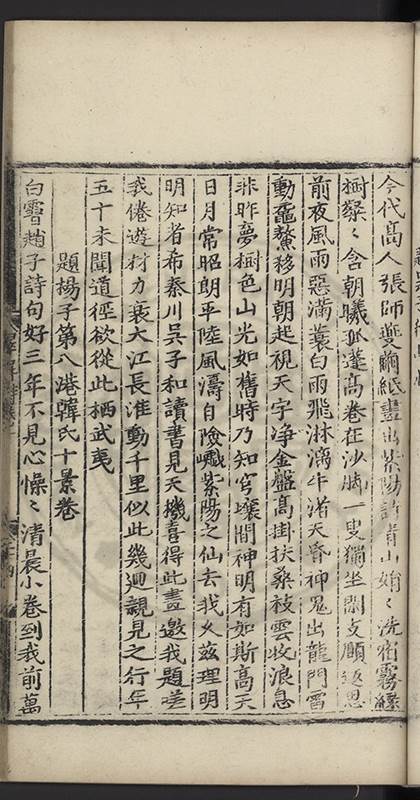 今代髙人張師夔繭紙畫出紫陽詩青山始〻洗宿霧緑
樹粲〻含朝曦孤蓬髙巻在沙觜一叟獨坐閑支頤返思
前夜風雨惡滿蓑白雨飛淋漓牛渚天昏神鬼出龍門雷
動黿鰲移明朝起視天宇净金盤髙掛扶桑枝雲收浪息
非昨夢樹色山光如舊時乃知穹壤間神明有如斯高天
日月常昭朗平陸風濤自險巇紫陽之仙去我久兹理明
明知者希秦川吳子和讀書見天機喜得此畫邀我題嗟
我倦逰材力衰大江長淮動千里似此幾迴親見之行年
五十未聞道徑欲從此栖武夷
題楊子第八港韓氏十景卷
白雪趙子詩句好三年不見心懆〻清晨小卷到我前萬